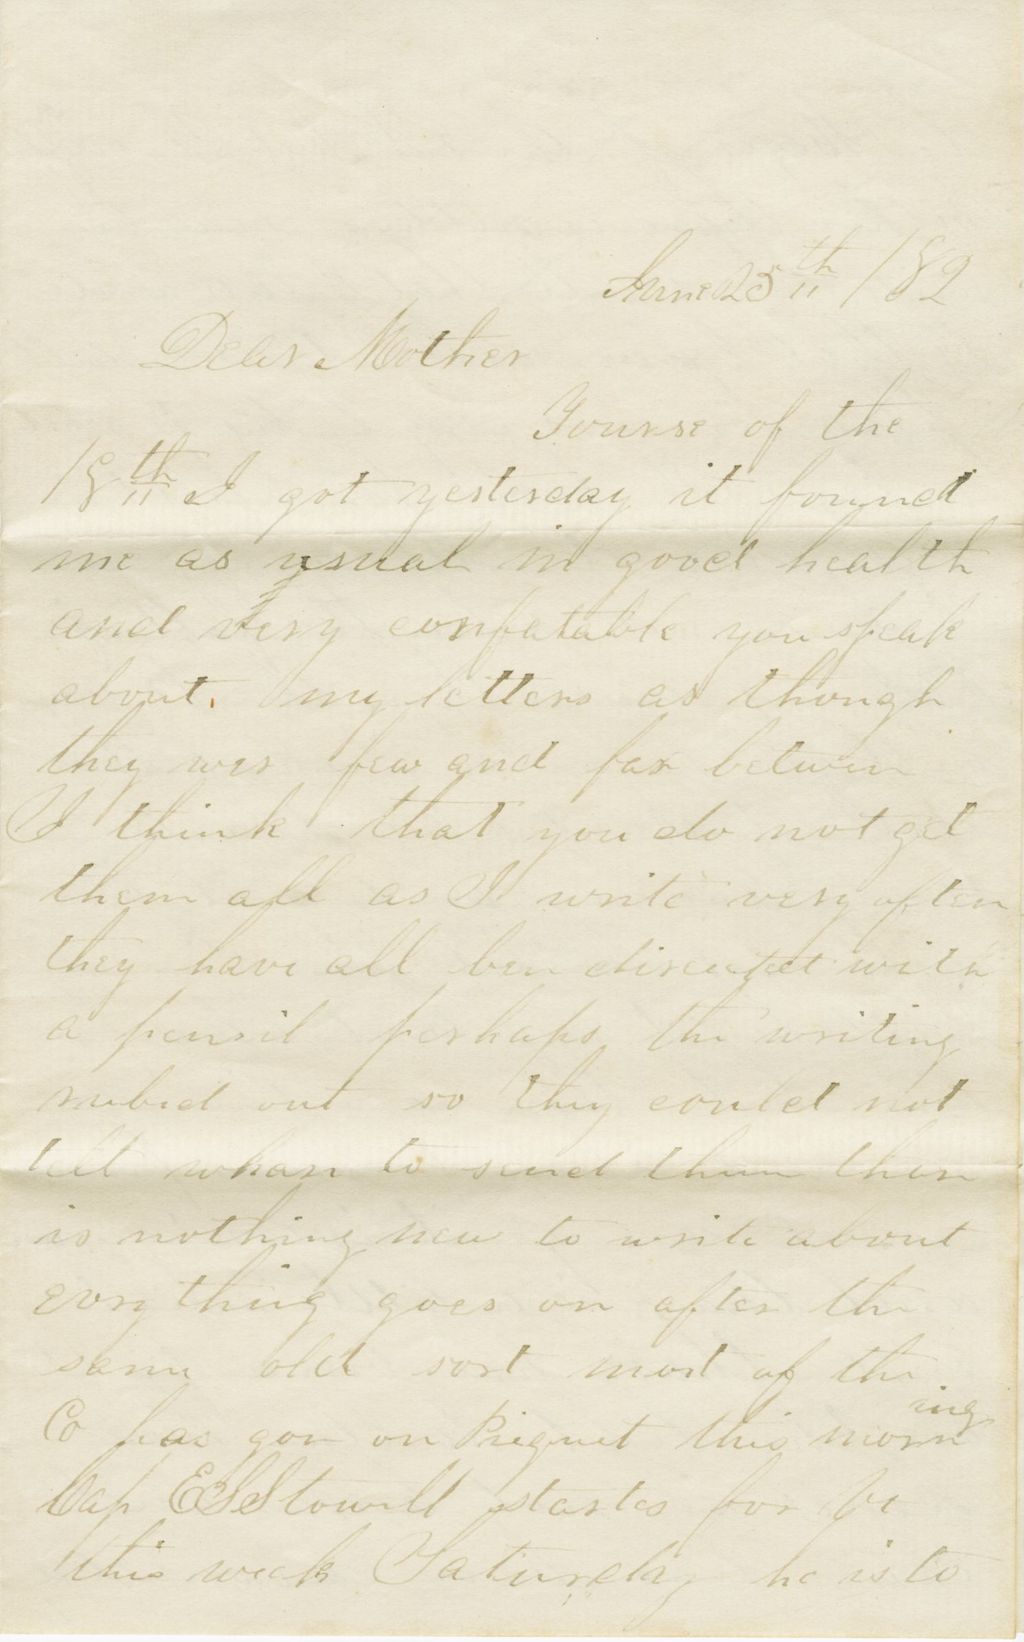 June 25th /82
Dear Mother
Yourse of the
18th I got yesterday it found
me as usual in good health
and very confatable you speak
about. my letters as though
they wer few and far betwen
I think that you do not get
them all as I write very often
they have all ben direcetet with
a pensil perhaps the writing
rubed out so they could not
tell whare to send them thare
is nothing new to write about
evry thing goes on after the
same old sort most of the
Co has gon on Piequet this morning
Cap E S Stowell startes for Vt
this week Saturday he is to